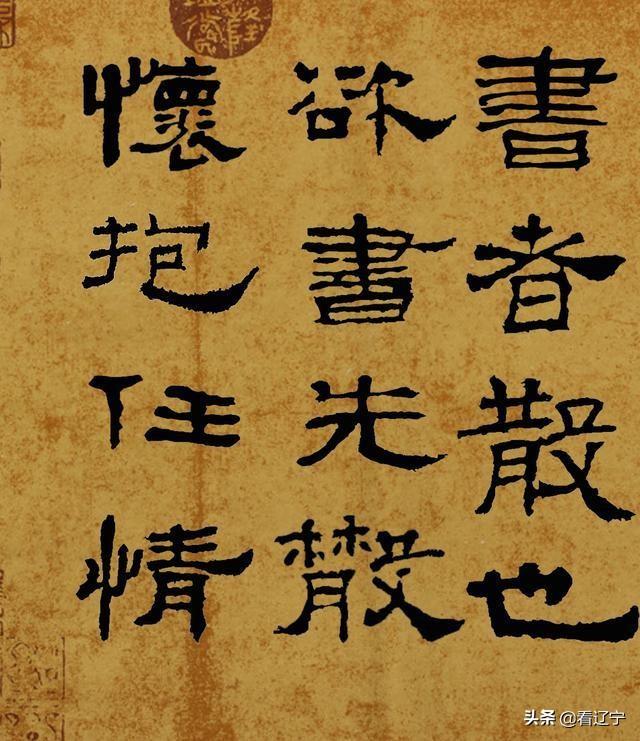 書者散也
欲書先散
懷抱任情
头条 @看辽宁